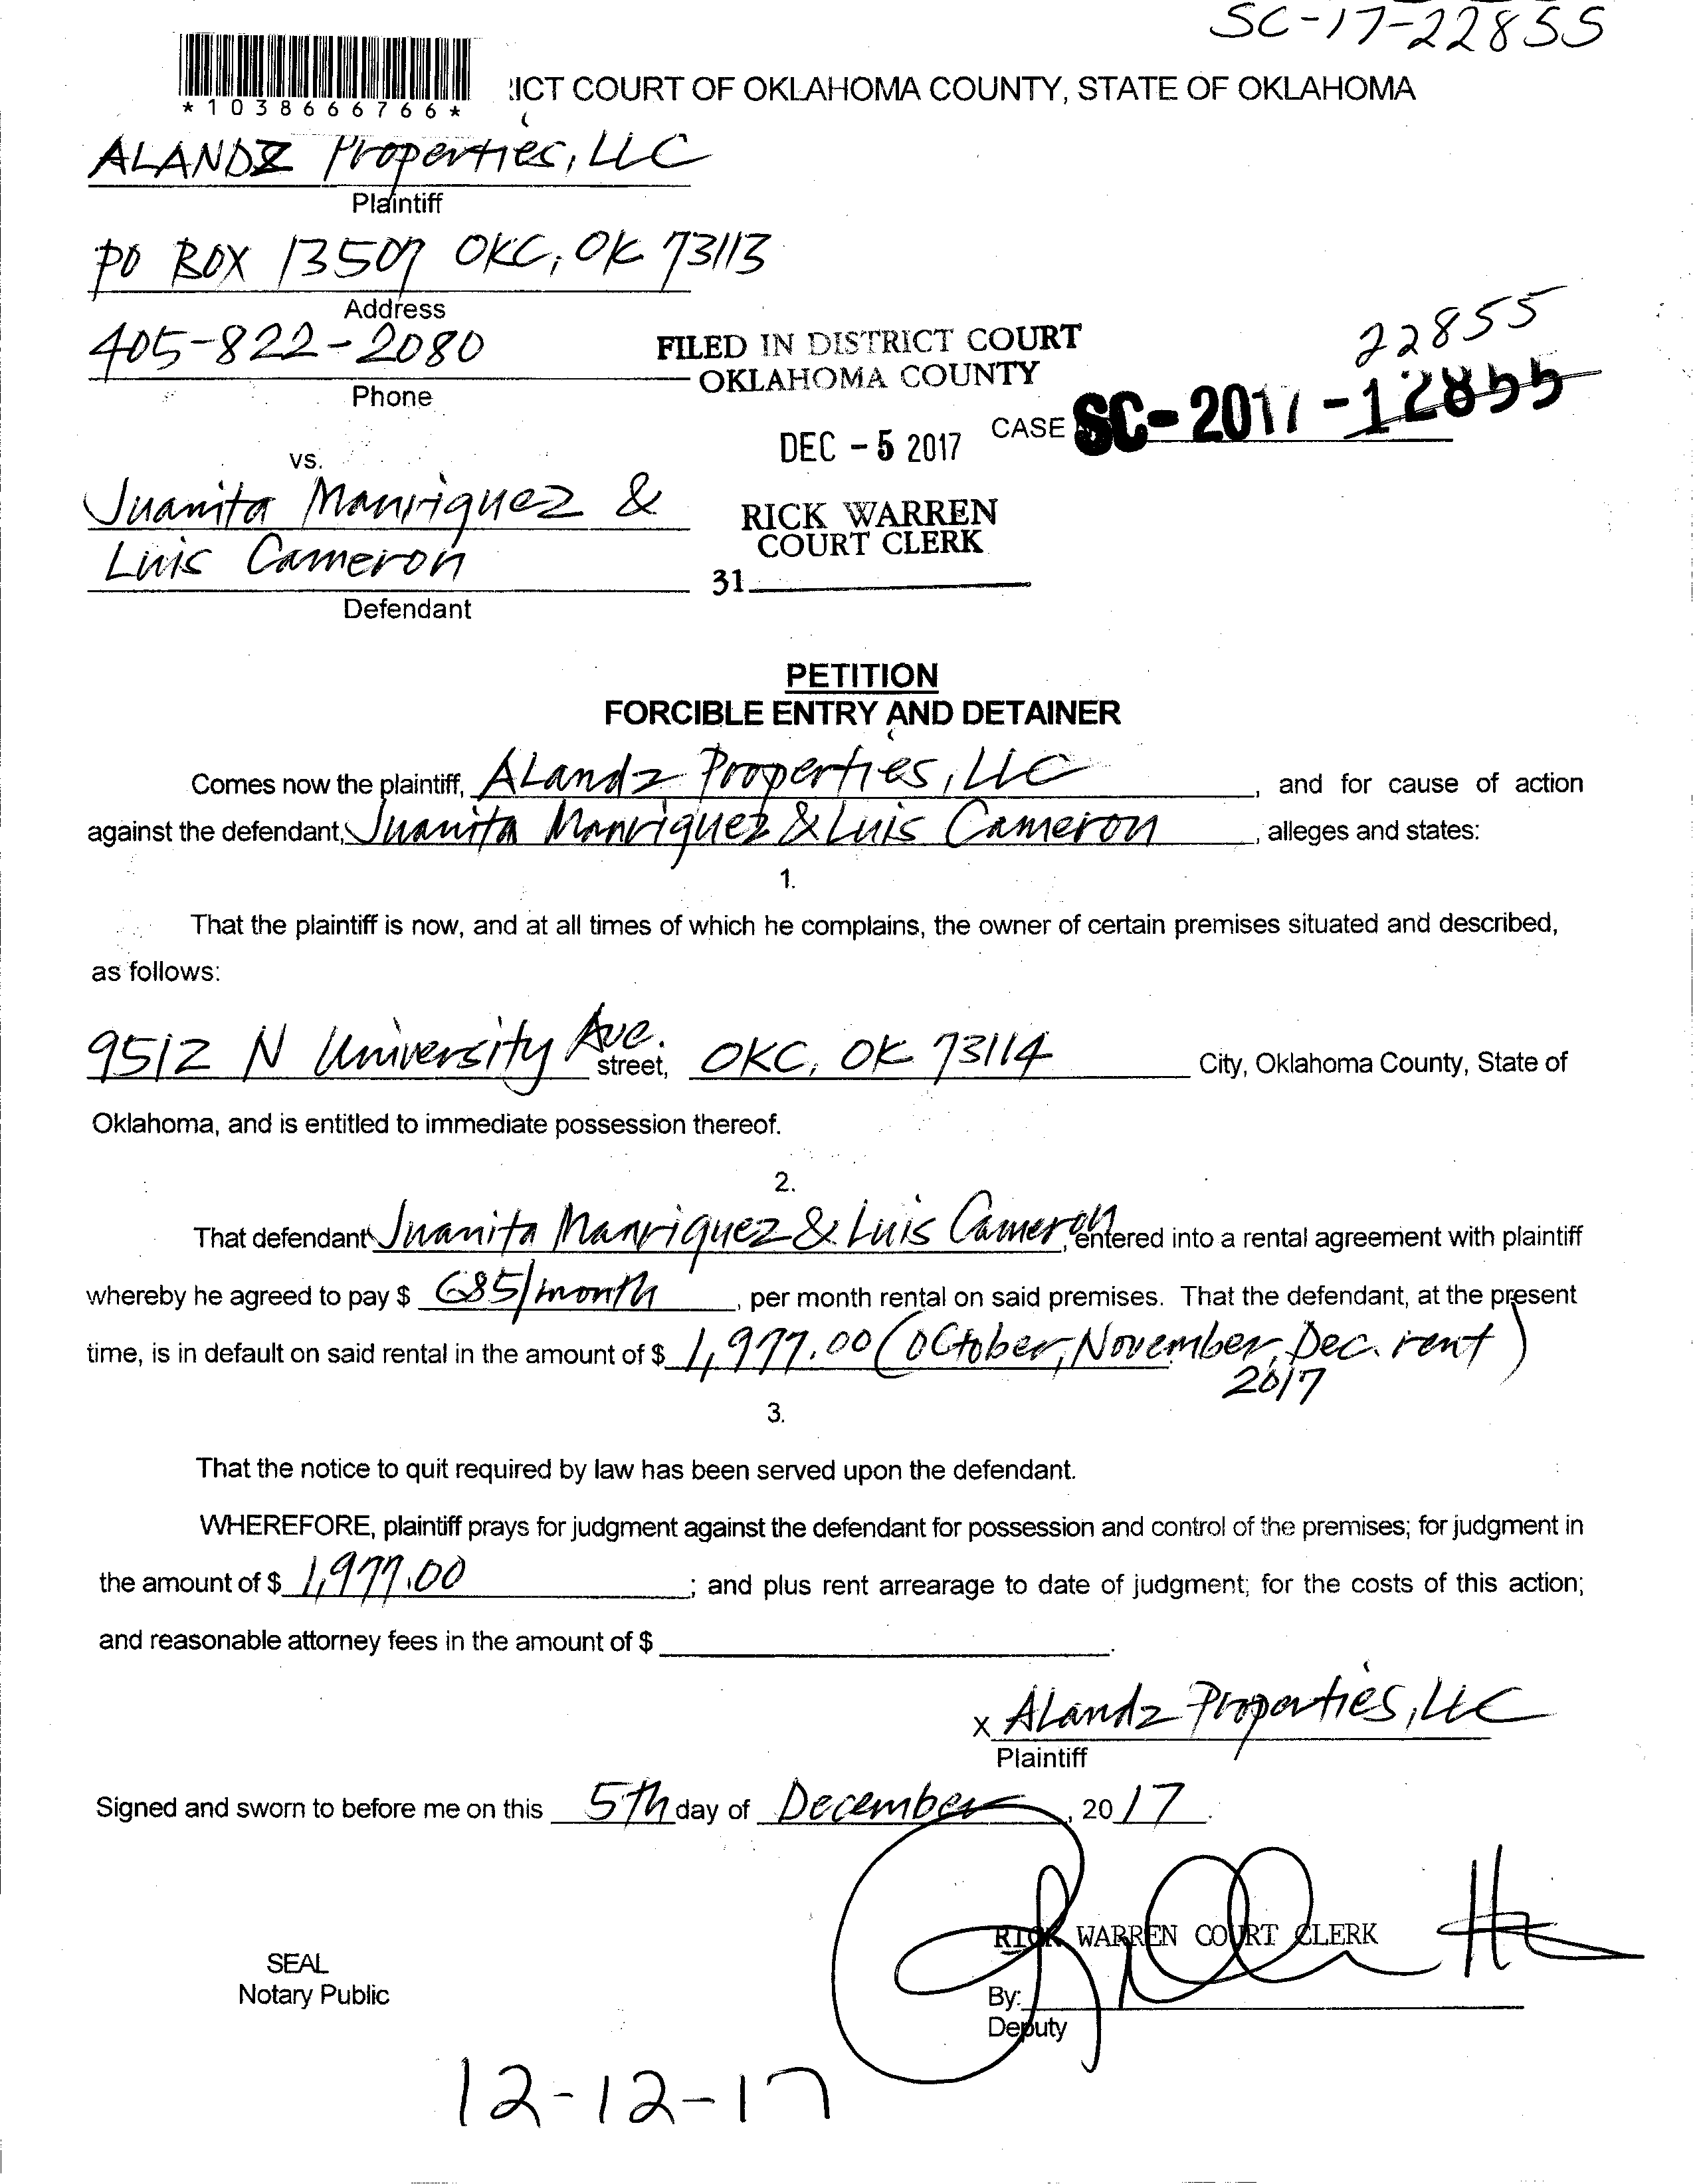 SC-17-22855
*1038666766*
ICT COURT OF OKLAHOMA COUNTY, STATE OF OKLAHOMA
ALANDZ Properties, LLC
Plaintiff
PO BOX 13507 OKC, OK 73113
Address
405-822-2080
Phone
FILED IN DISTRICT COURT
OKLAHOMA COUNTY
22855
DEC - 5 2017
CASE SC-2017-12855
vs.
Juanita Manriquez &
Luis Cameron
Defendant
RICK WARREN
COURT CLERK
31
PETITION
FORCIBLE ENTRY AND DETAINER
Comes now the plaintiff, ALandz Properties, LLC, and for cause of action
against the defendant, Juanita Manriquez & Luis Cameron, alleges and states:
1.
That the plaintiff is now, and at all times of which he complains, the owner of certain premises situated and described,
as follows:
9512 N University Ave. street, OKC, OK 73114 City, Oklahoma County, State of
Oklahoma, and is entitled to immediate possession thereof.
2.
That defendant Juanita Manriquez & Luis Cameron, entered into a rental agreement with plaintiff
whereby he agreed to pay $ 685/month, per month rental on said premises. That the defendant, at the present
time, is in default on said rental in the amount of $ 1,977.00 (October, November, Dec. rent)
2017
3.
That the notice to quit required by law has been served upon the defendant.
WHEREFORE, plaintiff prays for judgment against the defendant for possession and control of the premises; for judgment in
the amount of $ 1,977.00; and plus rent arrearage to date of judgment; for the costs of this action;
and reasonable attorney fees in the amount of $ .
x ALandz Properties, LLC
Plaintiff
Signed and sworn to before me on this 5th day of December, 2017.
RICK WARREN COURT CLERK
SEAL
Notary Public
By:
Deputy
12-12-17